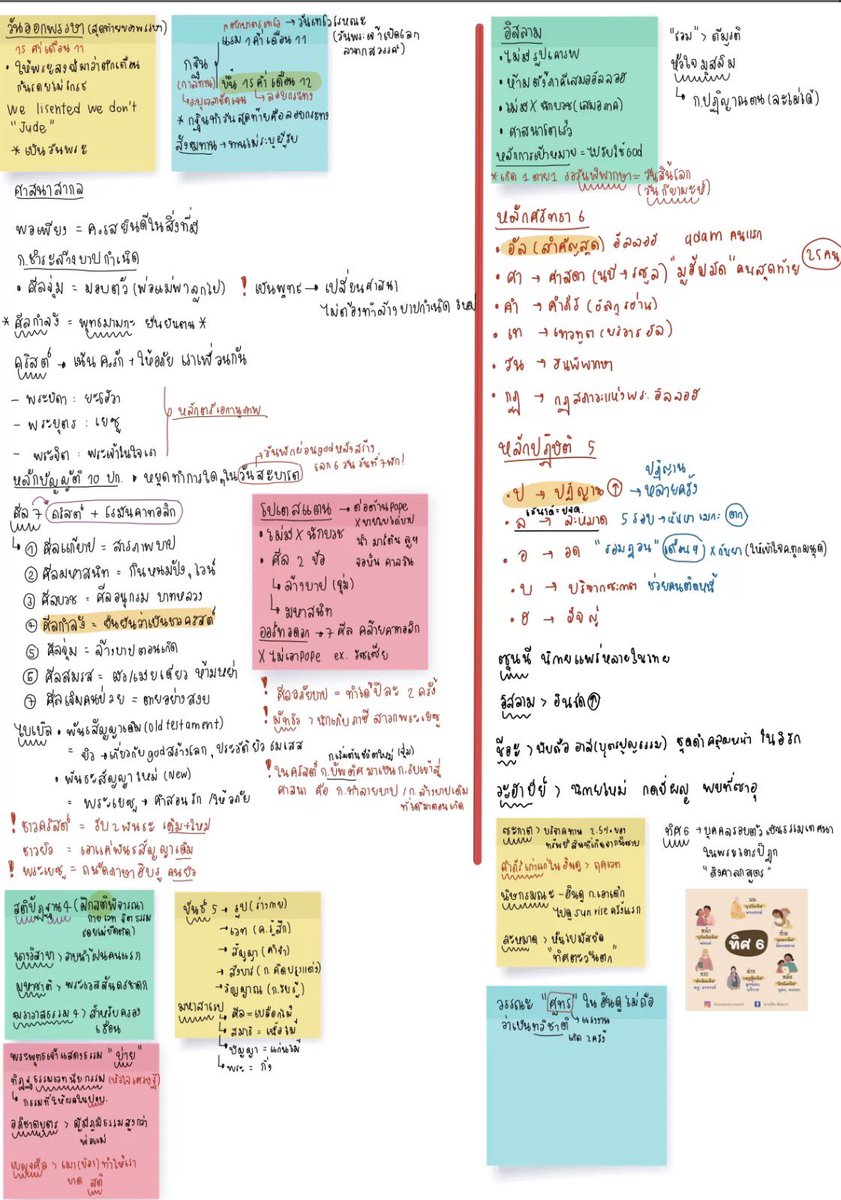 วันออกพรรษา (สุดท้ายของพรรษา)
15 ค่ำเดือน 11
• ให้พระสงฆ์
We lisented we don't
"Jude"
* เป็นวันพระ
วันเทโวโรหณะ
แรม 1 ค่ำเดือน 11
(วันพระเจ้าเปิดโลก
กฐิน
(กาลทาน)
ขึ้น 15 ค่ำ เดือน 12
ลอยกระทง
* กฐินทำวันสุดท้ายคือลอยกระทง
สังฆทาน → ทานไม่ระบุผู้รับ
ศาสนาสากล
พอเพียง = ยินดีในสิ่งที่มี
ก.ชำระล้างบาปกำเนิด
• ศีลจุ่ม = มอบตัว (พ่อแม่พาลูกไป)
! เป็นพุทธ → เปลี่ยนศาสนา
ไม่ต้องทำล้างบาปกำเนิด
* ศีลกำลัง = พุทธมามกะ ยืนยันตน *
คริสต์ → เน้น ค.รัก + ให้อภัย เราเพื่อนกัน
- พระบิดา : ยะโฮวา
- พระบุตร : เยซู
- พระจิต : พระเจ้าในใจเรา
หลักตรีเอกานุภาพ
หลักบัญญัติ 10 ปก. • หยุดทำการใดๆ ในวันสะบาโต
วันพักผ่อน god หลังสร้าง
โลก 6 วัน วันที่ 7 พัก!
ศีล 7 คริสต์ + โรมันคาทอลิก
① ศีลแก้บาป = สารภาพบาป
② ศีลมหาสนิท = กินขนมปัง, ไวน์
③ ศีลบวช = ศีลอนุกรม บาทหลวง
④ ศีลกำลัง = ยืนยันว่าเป็นชาวคริสต์
⑤ ศีลจุ่ม = ล้างบาปตอนเกิด
⑥ ศีลสมรส = ผัว/เมียเดียว ห้ามหย่า
⑦ ศีลเจิมคนป่วย = ตายอย่างสงบ
โปเตสแตน → ต่อต้าน pope
• ไม่มี X นักบวช
นำ มาร์ติน ลูเธอ
• ศีล 2 ข้อ
จอห์น คาลวิน
ล้างบาป (จุ่ม)
มหาสนิท
ออร์ทอดอก → 7 ศีล คล้ายคาทอลิก
X ไม่เอา pope ex. รัซเซีย
! ศีลอภัยบาป = ทำได้ปีละ 2 ครั้ง
! มัทธิว > นักเก็บภาษี สาวกพระเยซู
ไบเบิล • พันธสัญญาเดิม (old testament)
= ยิว → เกี่ยวกับ god สร้างโลก, ประวัติยิว โมเสส
• พันธะสัญญาใหม่ (New)
= พระเยซู → คำสอนรัก / ให้อภัย
! ในคริสต์ ก.บัพติศมาเป็น ก.รับเข้าสู่
ศาสนา คือ ก.ทำลายบาป / ก.ล้างบาปเดิม
ที่ได้มาตอนเกิด
! ชาวคริสต์ = รับ 2 พันธะ เดิม+ใหม่
ชาวยิว = เอาแค่พันธสัญญาเดิม
! พระเยซู = ถนัดภาษาฮิบรู คนยิว
สติปัฏฐาน 4 (ฝึกสติพิจารณา
กาย เวท จิต ธรรม
นางวิสาขา > อาบน้ำฝนคนแรก
มหาชาติ > พระเวสสันดรชาดก
ฆราวาสธรรม 4 > สำหรับครอง
เรือน
ขันธ์ 5 → รูป (ร่างกาย)
→ เวท (ค.รู้สึก)
→ สัญญา (ค.จำ)
→ สังขาร (ก.คิดปรุงแต่ง)
→ วิญญาณ (ก.รับรู้)
มหาสาโรป
ศีล = เปลือกไม้
สมาธิ =
ปัญญา = แก่นไม้
พระ = กิ่ง
พระพุทธเจ้าแสดงธรรม "บ่าย"
ทิฏฐธรรมเวทนียกรรม
กรรมที่ให้ผลใน
อภิชาตบุตร > ผู้มีภูมิธรรมสูงกว่า
พ่อแม่
เบญจศีล > เมา (ข้อ5) ทำให้เรา
ขาด สติ
อิสลาม
• ไม่มีรูปเคารพ
• ห้ามตั้งภาคีเสมออัลลอฮ
• ไม่มี X นักบวช (เสมอภาค)
• ศาสนาโตเร็ว
หลักการเป้าหมาย = ไปรับใช้ god
* เกิด 1 ตาย 1 รอวันพิพากษา = วันสิ้นโลก
(วันกียามะฮ์)
หัวใจมุสลิม
ก.ปฏิญาณตน (ละไม่ได้)
หลักศรัทธา 6
• อัล (สำคัญสุด) อัลลอฮ adam คนแรก
• ศา → ศาสดา (นบี → รซูล) "มูฮัมมัด" คนสุดท้าย 25 คน
• คำ → คัมภีร์ (อัลกุรอ่าน)
• เท → เทวทูต (บริวารอัล)
• วัน → วันพิพากษา
• กฏ → กฏสภาวะแห่งพระอัลลอฮ
หลักปฏิบัติ 5
• ป → ปฏิญาณ ↑ → หลายครั้ง
ปฏิญาณ
• ล → ละหมาด 5 รอบ → หันหา เมกะ ตก
• อ → อด "รอมฎอน" เดือน 9
• บ → บริจาคซะกาต ช่วยคนติดหนี้
• ฮ → ฮัจญ์
ซุนนี นิกายแพร่หลายในไทย
อิสลาม > อินโด ↑
ชีอะ > นับถืออาลี (บุตรบุญธรรม) ชุดดำคลุมหน้า ในอิรัก
วะฮาบีย์ > นิกายใหม่ กดขี่ผญ พบที่ซาอุ
ซะกาต > บริจาคทาน 2.5% ของ
คำภีร์เก่าแก่ในฮินดู > ฤคเวท
นิษกรมณะ - ฮินดู ก.เอาเด็ก
ไปดู sun rise ครั้งแรก
ละหมาด > หันไปมัสยิด
"ทิศตะวันตก"
ทิศ 6 • บุคคลรอบตัว เป็นธรรมเทศนา
ในพระไตรปิฎก
"สิงคาลกสูตร"
ทิศ 6
วรรณะ "ศูทร" ในฮินดูไม่ถือ
ว่าเป็นทวิชาติ
แรงงาน
เกิด 2 ครั้ง